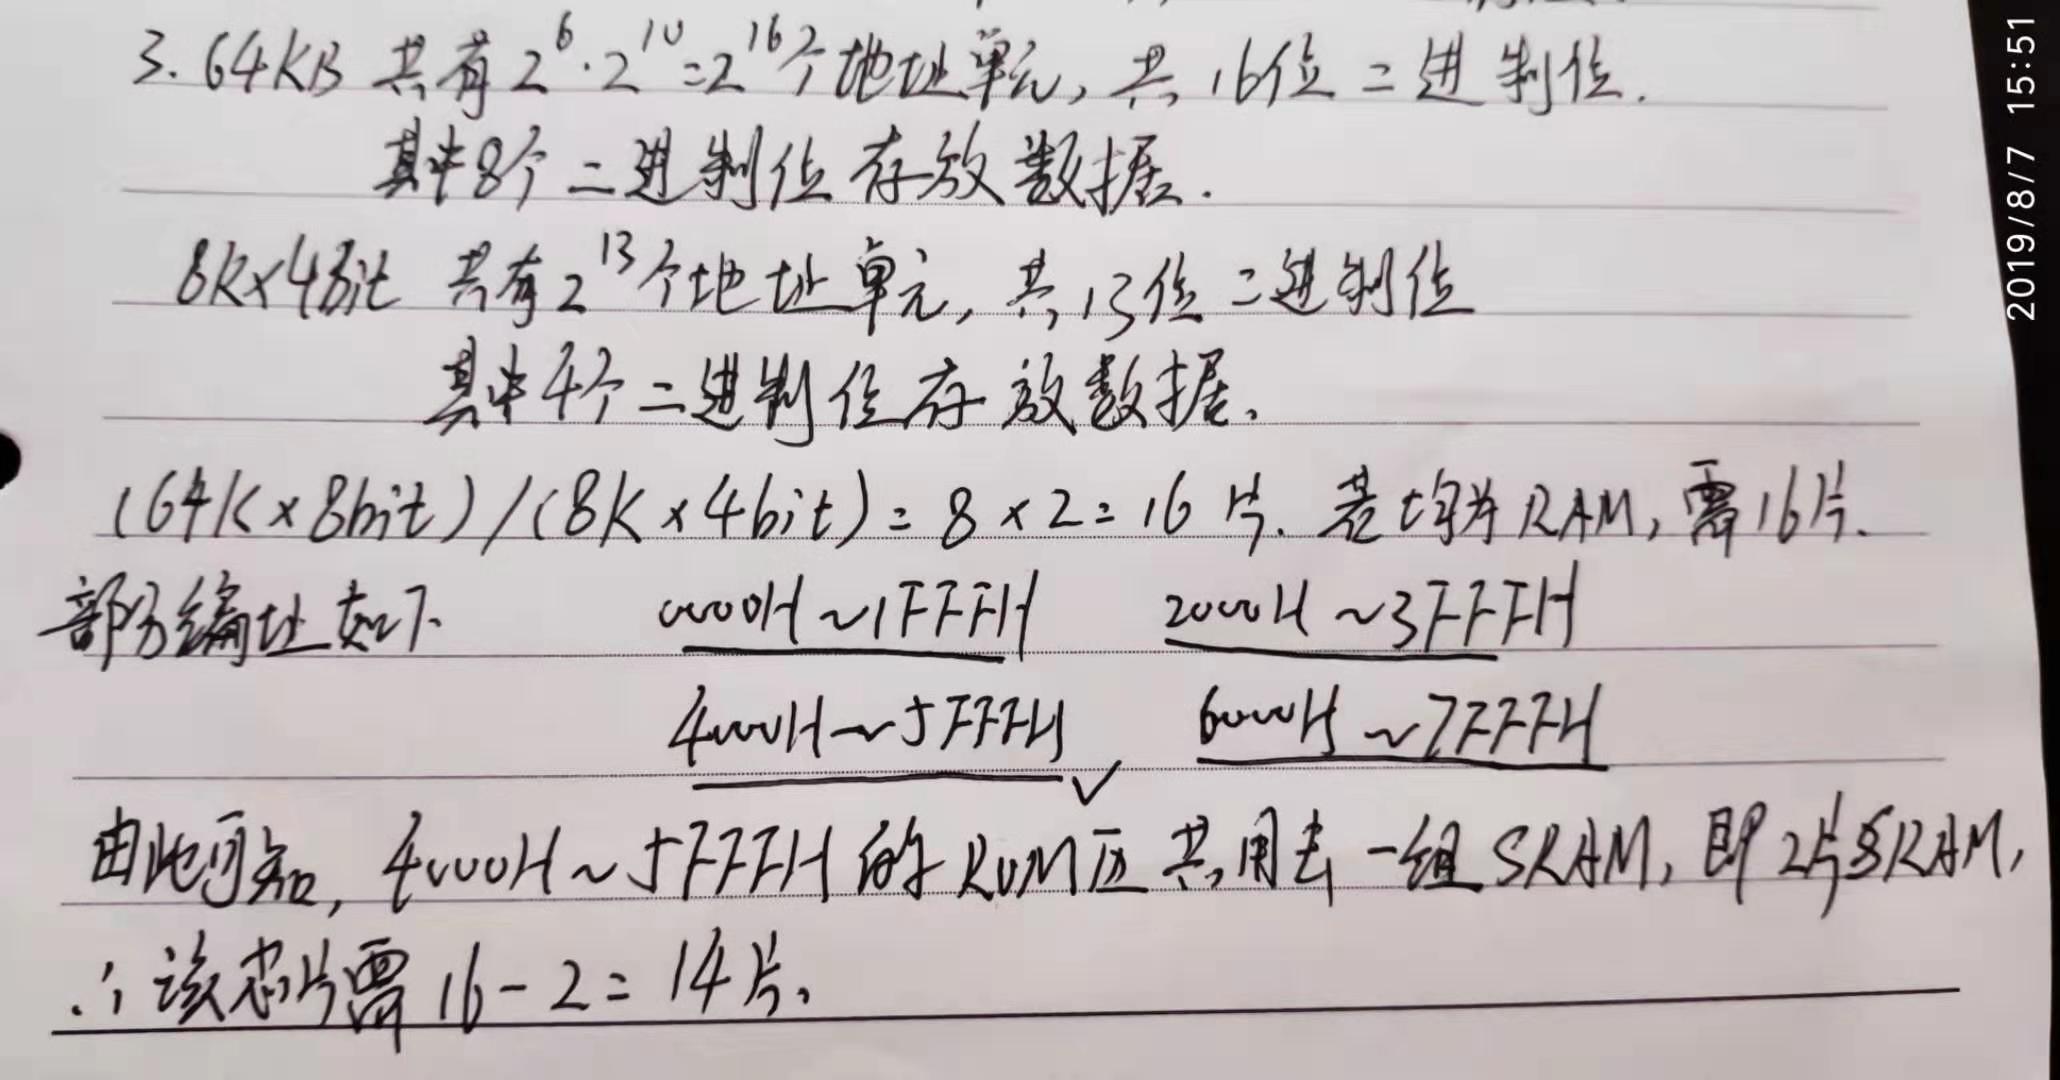 3. 64KB 共有2^6·2^10=2^16个地址单元, 共16位二进制位.
其中8个二进制位存放数据.
8K×4Bit 共有2^13个地址单元, 共13位二进制位
其中4个二进制位存放数据.
(64K×8bit)/(8K×4bit)=8×2=16片. 若均为RAM, 需16片.
部分编址如下.
0000H~1FFFH 2000H~3FFFH
4000H~5FFFH✓ 6000H~7FFFH
由此可知, 4000H~5FFFH的ROM区共用去一组SRAM, 即2片SRAM,
∴该芯片需16-2=14片.
2019/8/7 15:51